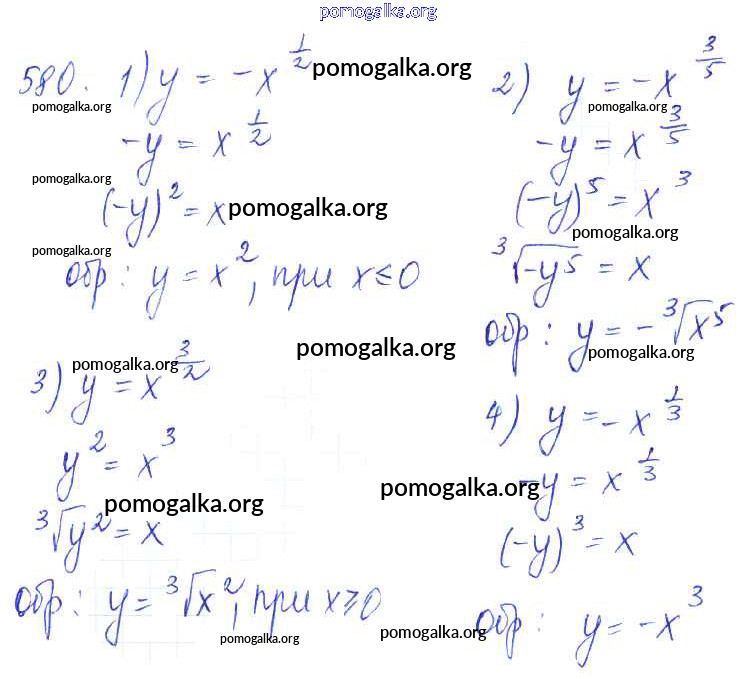 pomogalka.org
580. 1) y = -x^{1/2} pomogalka.org
pomogalka.org
-y = x^{1/2}
pomogalka.org
(-y)^2 = x pomogalka.org
pomogalka.org
обр: y = x^2, при x ≤ 0
2) y = -x^{3/5}
pomogalka.org
-y = x^{3/5}
(-y)^5 = x^3
pomogalka.org
∛(-y^5) = x
обр: y = -∛x^5
pomogalka.org
pomogalka.org
pomogalka.org
3) y = x^{3/2}
y^2 = x^3
pomogalka.org
∛y^2 = x
обр: y = ∛x^2, при x ≥ 0
pomogalka.org
4) y = -x^{1/3}
pomogalka.org -y = x^{1/3}
(-y)^3 = x
обр: y = -x^3
pomogalka.org